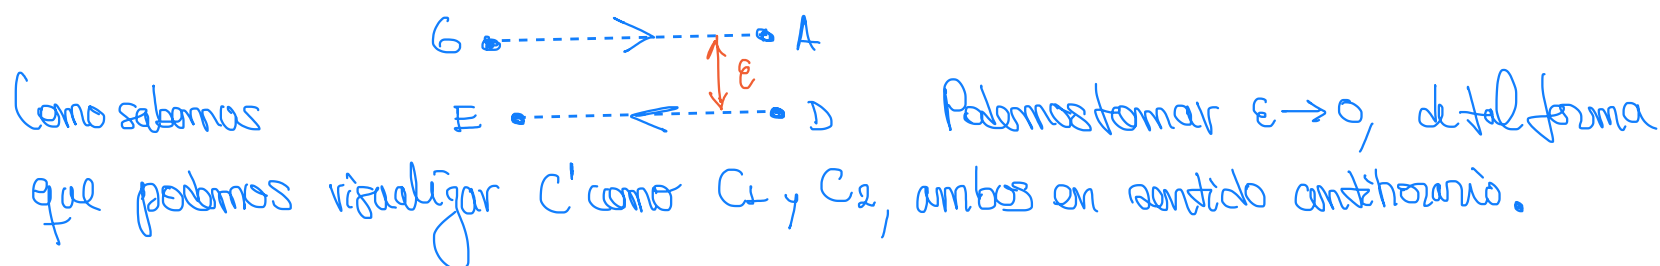 G A
ε
Como sabemos E D Podemos tomar ε→0, de tal forma
que podemos visualizar C' como C1 y C2, ambos en sentido antihorario.